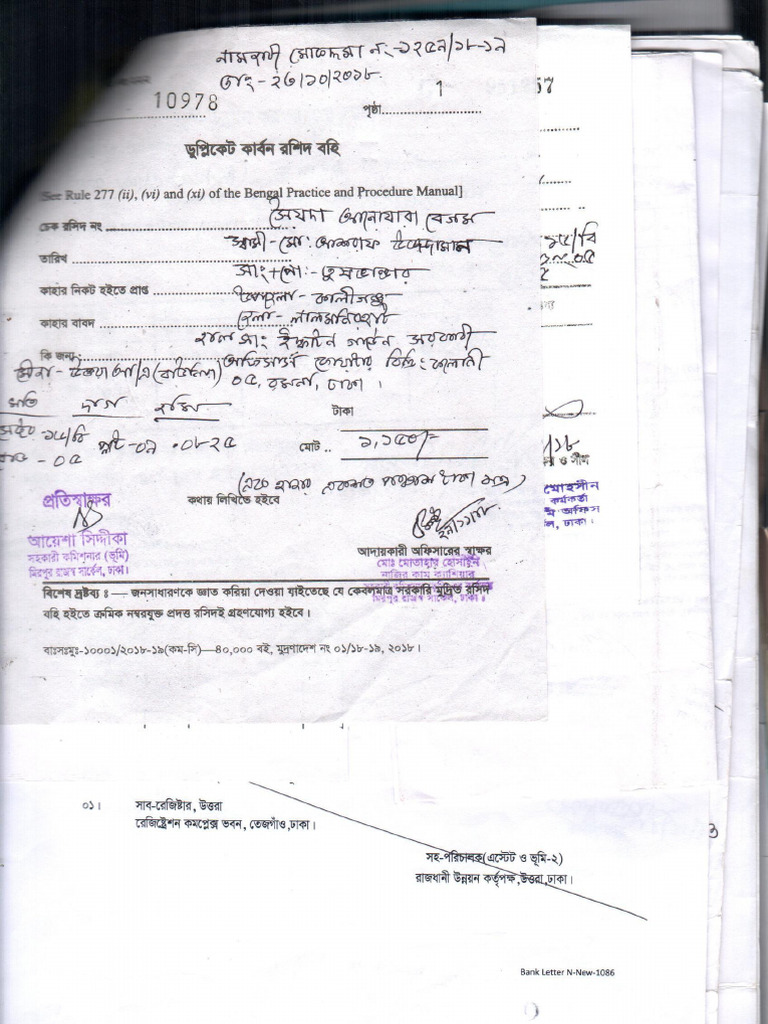 নামজারী মোকদ্দমা নং-১২৫৯/১৮-১৯
তাং-২৩/১০/২০১৮
10978
পৃষ্ঠা 1
ডুপ্লিকেট কার্বন রশিদ বহি
[See Rule 277 (ii), (vi) and (xi) of the Bengal Practice and Procedure Manual]
চেক রসিদ নং সৈয়দা আনোয়ারা বেগম
স্বামী-মো: আশরাফ
তারিখ
সাং+পো:-তুষভান্ডার
কাহার নিকট হইতে প্রাপ্ত উপজেলা-কালীগঞ্জ
কাহার বাবদ জেলা-লালমনিরহাট
হাল সাং ইস্কাটন গার্ডেন সরকারী
কি জন্য অফিসার্স কোয়ার্টার
০৫, রমনা, ঢাকা।
দাগ
টাকা
০৮২৫
মোট .. ১,১৫০/-
(এক হাজার একশত পঞ্চাশ টাকা মাত্র)
কথায় লিখিতে হইবে
প্রতিস্বাক্ষর
আয়েশা সিদ্দীকা
সহকারী কমিশনার (ভূমি)
মিরপুর রাজস্ব সার্কেল, ঢাকা।
আদায়কারী অফিসারের স্বাক্ষর
মোঃ মোতাহার হোসাইন
নাজির কাম ক্যাশিয়ার
মিরপুর রাজস্ব সার্কেল, ঢাকা।
বিশেষ দ্রষ্টব্য ঃ— জনসাধারণকে জ্ঞাত করিয়া দেওয়া যাইতেছে যে কেবলমাত্র সরকারি মুদ্রিত রসিদ
বহি হইতে ক্রমিক নম্বরযুক্ত প্রদত্ত রসিদই গ্রহণযোগ্য হইবে।
বাঃসঃমুঃ-১০০০১/২০১৮-১৯(কম-সি)—৪০,০০০ বই, মুদ্রণাদেশ নং ০১/১৮-১৯, ২০১৮।
০১। সাব-রেজিষ্টার, উত্তরা
রেজিষ্ট্রেশন কমপ্লেক্স ভবন, তেজগাঁও,ঢাকা।
সহ-পরিচালক(এস্টেট ও ভূমি-২)
রাজধানী উন্নয়ন কর্তৃপক্ষ,উত্তরা,ঢাকা।
Bank Letter N-New-1086